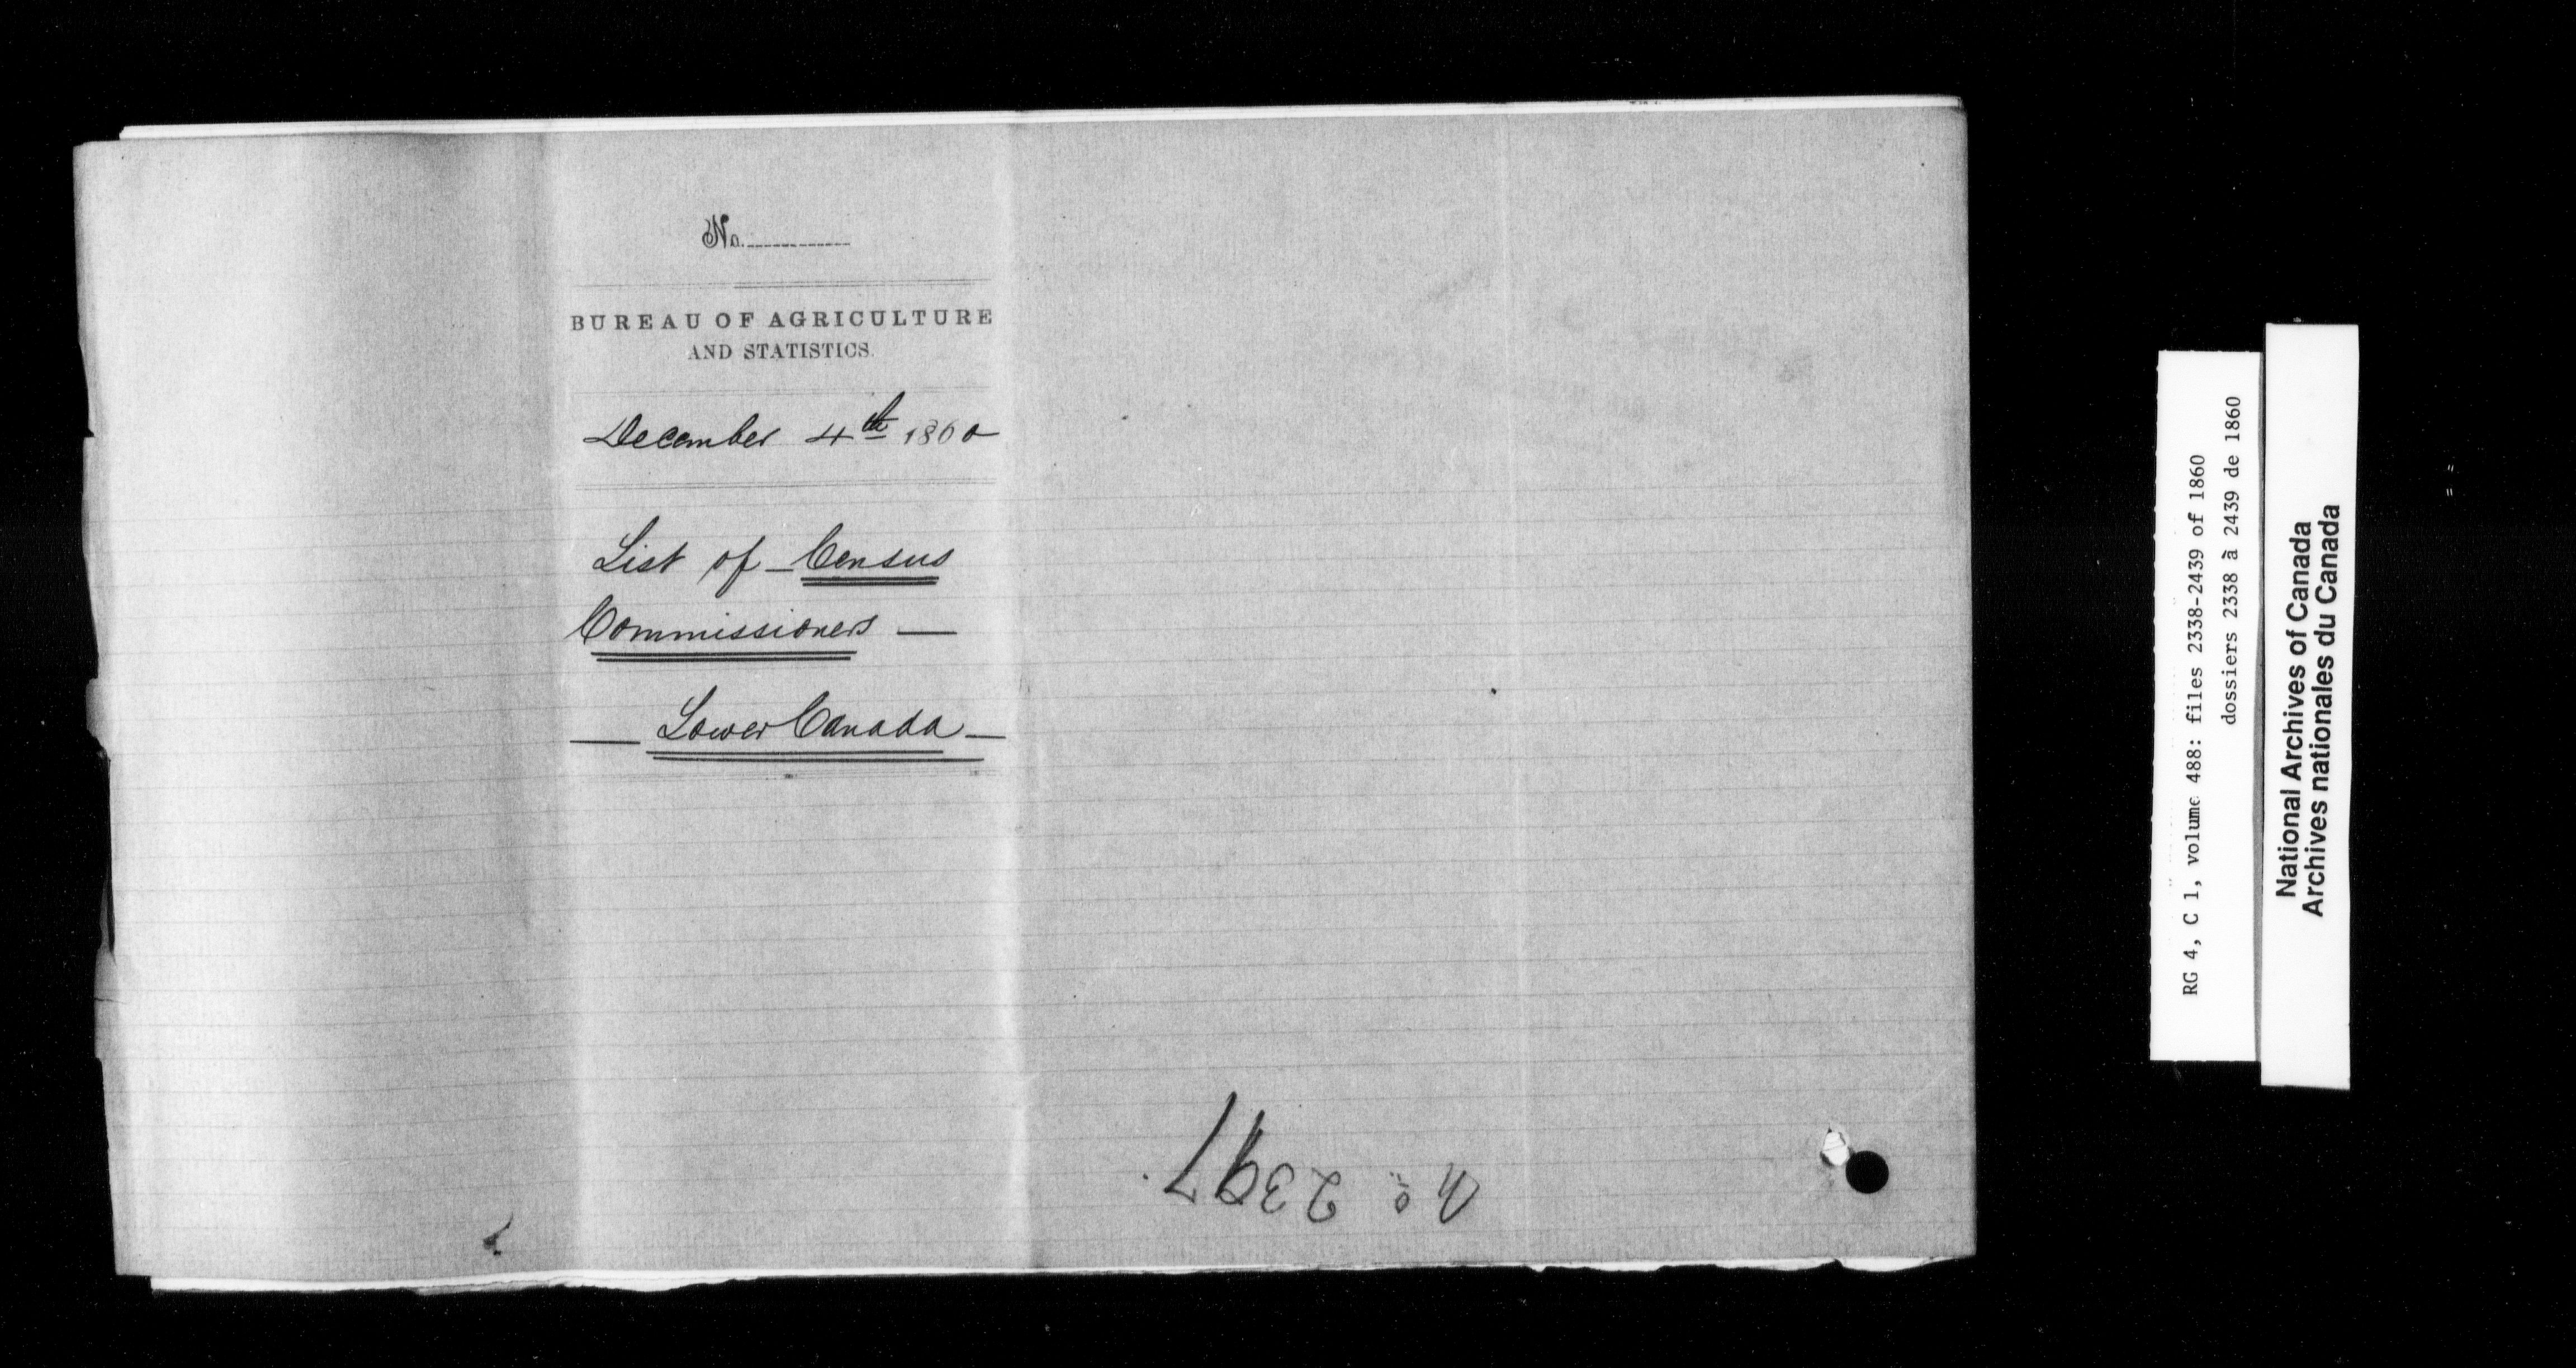 No.
BUREAU OF AGRICULTURE
AND STATISTICS.
December 4th 1860
List of Census
Commissioners —
— Lower Canada —
No 2397
RG 4, C 1, volume 488: files 2338-2439 of 1860
dossiers 2338 à 2439 de 1860
National Archives of Canada
Archives nationales du Canada